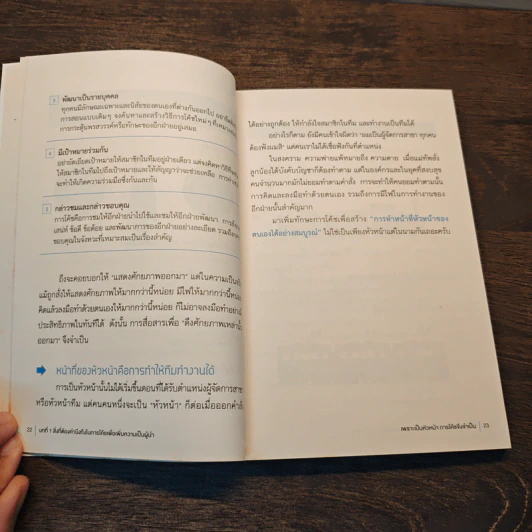 3 พัฒนาเป็นรายบุคคล
ทุกคนมีลักษณะเฉพาะและนิสัยของตนเองที่ต่างกันออกไป อย่ายึดติด
การสอนแบบเดิมๆ จงค้นหาและสร้างวิธีการโค้ชใหม่ๆ ที่เหมาะสม
การกระตุ้นพรสวรรค์หรือทักษะของอีกฝ่ายอยู่เสมอ
4 มีเป้าหมายร่วมกัน
อย่ายัดเยียดเป้าหมายให้สมาชิกในทีมอยู่ฝ่ายเดียว แต่จงคิดหาวิธีที่จะ
ให้สมาชิกในทีมไปถึงเป้าหมายและให้สัญญาว่าจะช่วยเหลือ การทำ
จะทำให้เกิดความร่วมมือซึ่งกันและกัน
5 กล่าวชมและกล่าวขอบคุณ
การโค้ชคือการชมให้อีกฝ่ายนำไปใช้และชมให้อีกฝ่ายพัฒนา การสังเกต
เสน่ห์ ข้อดี ข้อด้อย และพัฒนาการของอีกฝ่ายอย่างละเอียด รวมถึงการ
ขอบคุณในจังหวะที่เหมาะสมเป็นเรื่องสำคัญ
ถึงจะคอยบอกให้ "แสดงศักยภาพออกมา" แต่ในความเป็นจริง
แม้ถูกสั่งให้แสดงศักยภาพให้มากกว่านี้หน่อย มีไฟให้มากกว่านี้หน่อย
คิดแล้วลงมือทำด้วยตนเองให้มากกว่านี้หน่อย ก็ไม่อาจลงมือทำอย่างมี
ประสิทธิภาพในทันทีได้ ดังนั้น การสื่อสารเพื่อ "ดึงศักยภาพเหล่านั้น
ออกมา" จึงจำเป็น
หน้าที่ของหัวหน้าคือการทำให้ทีมทำงานได้
การเป็นหัวหน้านั้นไม่ได้เริ่มขึ้นตอนที่ได้รับตำแหน่งผู้จัดการสาขา
หรือหัวหน้าทีม แต่คนคนหนึ่งจะเป็น "หัวหน้า" ก็ต่อเมื่อออกคำสั่ง
22 บทที่ 1 สิ่งที่ต้องคำนึงถึงในการโค้ชเพื่อเพิ่มความเป็นผู้นำ
ได้อย่างถูกต้อง ให้กำลังใจสมาชิกในทีม และทำงานเป็นทีมได้
อย่างไรก็ตาม ยังมีคนเข้าใจผิดว่า "ผมเป็นผู้จัดการสาขา ทุกคน
ต้องฟังผมสิ" แต่คนเราไม่ได้เชื่อฟังกันที่ตำแหน่ง
ในสงคราม ความพ่ายแพ้หมายถึง ความตาย เมื่อแม่ทัพสั่ง
ลูกน้องได้บังคับบัญชาก็ต้องทำตาม แต่ในองค์กรและในยุคที่สงบสุข
คนจำนวนมากมักไม่ยอมทำตามคำสั่ง การจะทำให้คนยอมทำตามนั้น
การคิดและลงมือทำด้วยตนเอง รวมถึงการมีไฟในการทำงานของ
อีกฝ่ายนั้นสำคัญมาก
มาเพิ่มทักษะการโค้ชเพื่อสร้าง "การทำหน้าที่หัวหน้าของ
ตนเองได้อย่างสมบูรณ์" ไม่ใช่เป็นเพียงหัวหน้าแต่ในนามกันเถอะครับ
เพราะเป็นหัวหน้า การโค้ชจึงจำเป็น 23